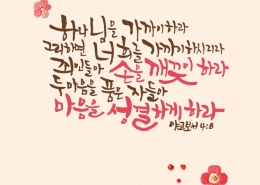 하나님을 가까이하라
그리하면 너희를 가까이하시리라
죄인들아 손을 깨끗이 하라
두 마음을 품은 자들아
마음을 성결하게 하라
야고보서 4:8